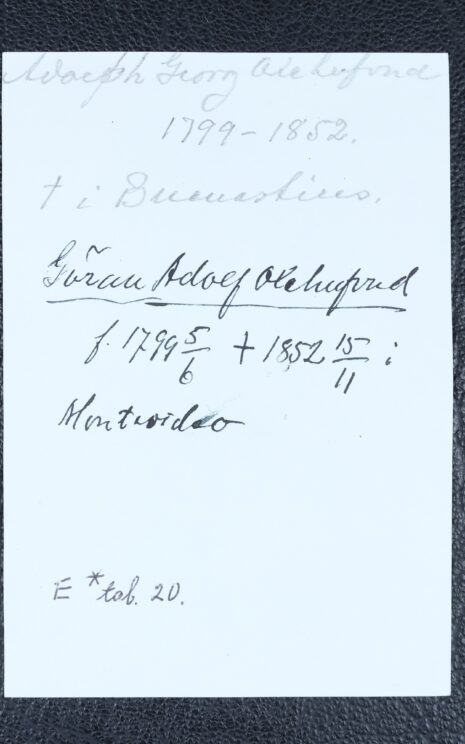 Adolph Georg Oxehufvud
1799–1852.
† i Buenos Aires.
Göran Adolf Oxehufvud
f. 1799 5/6 † 1852 15/11 i
Montevideo
E * tab. 20.